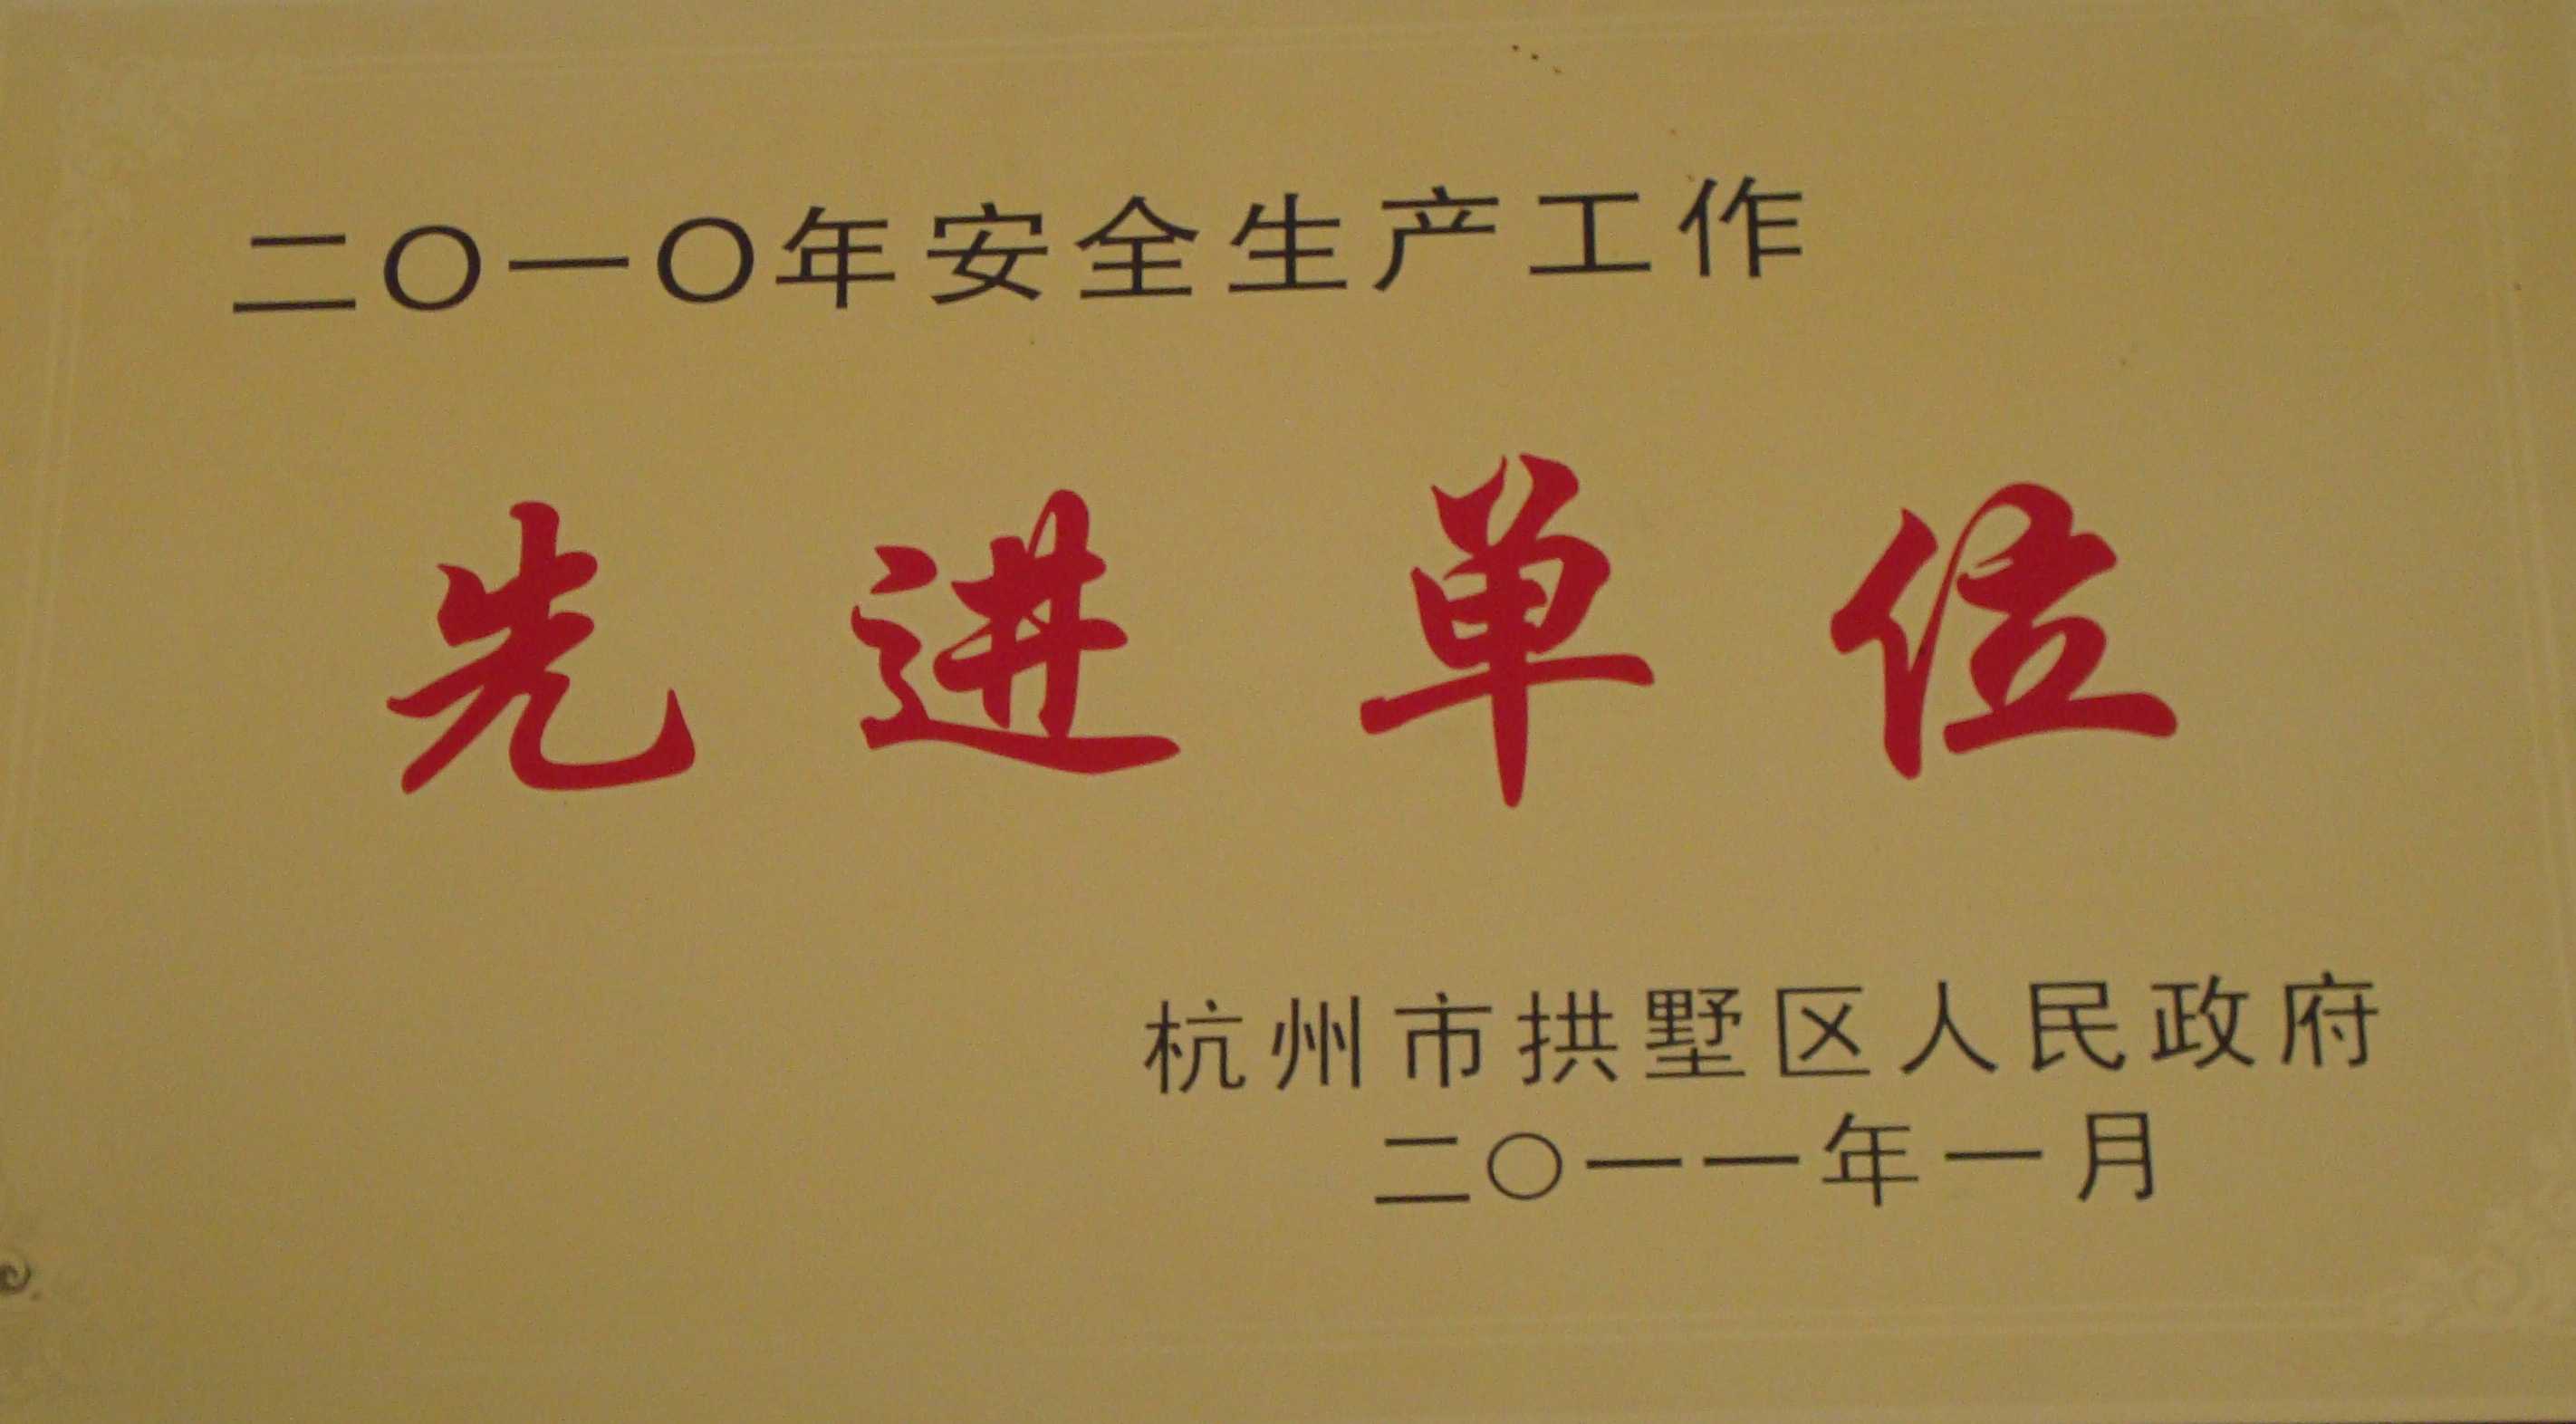 二〇一〇年安全生产工作
先进单位
杭州市拱墅区人民政府
二〇一一年一月